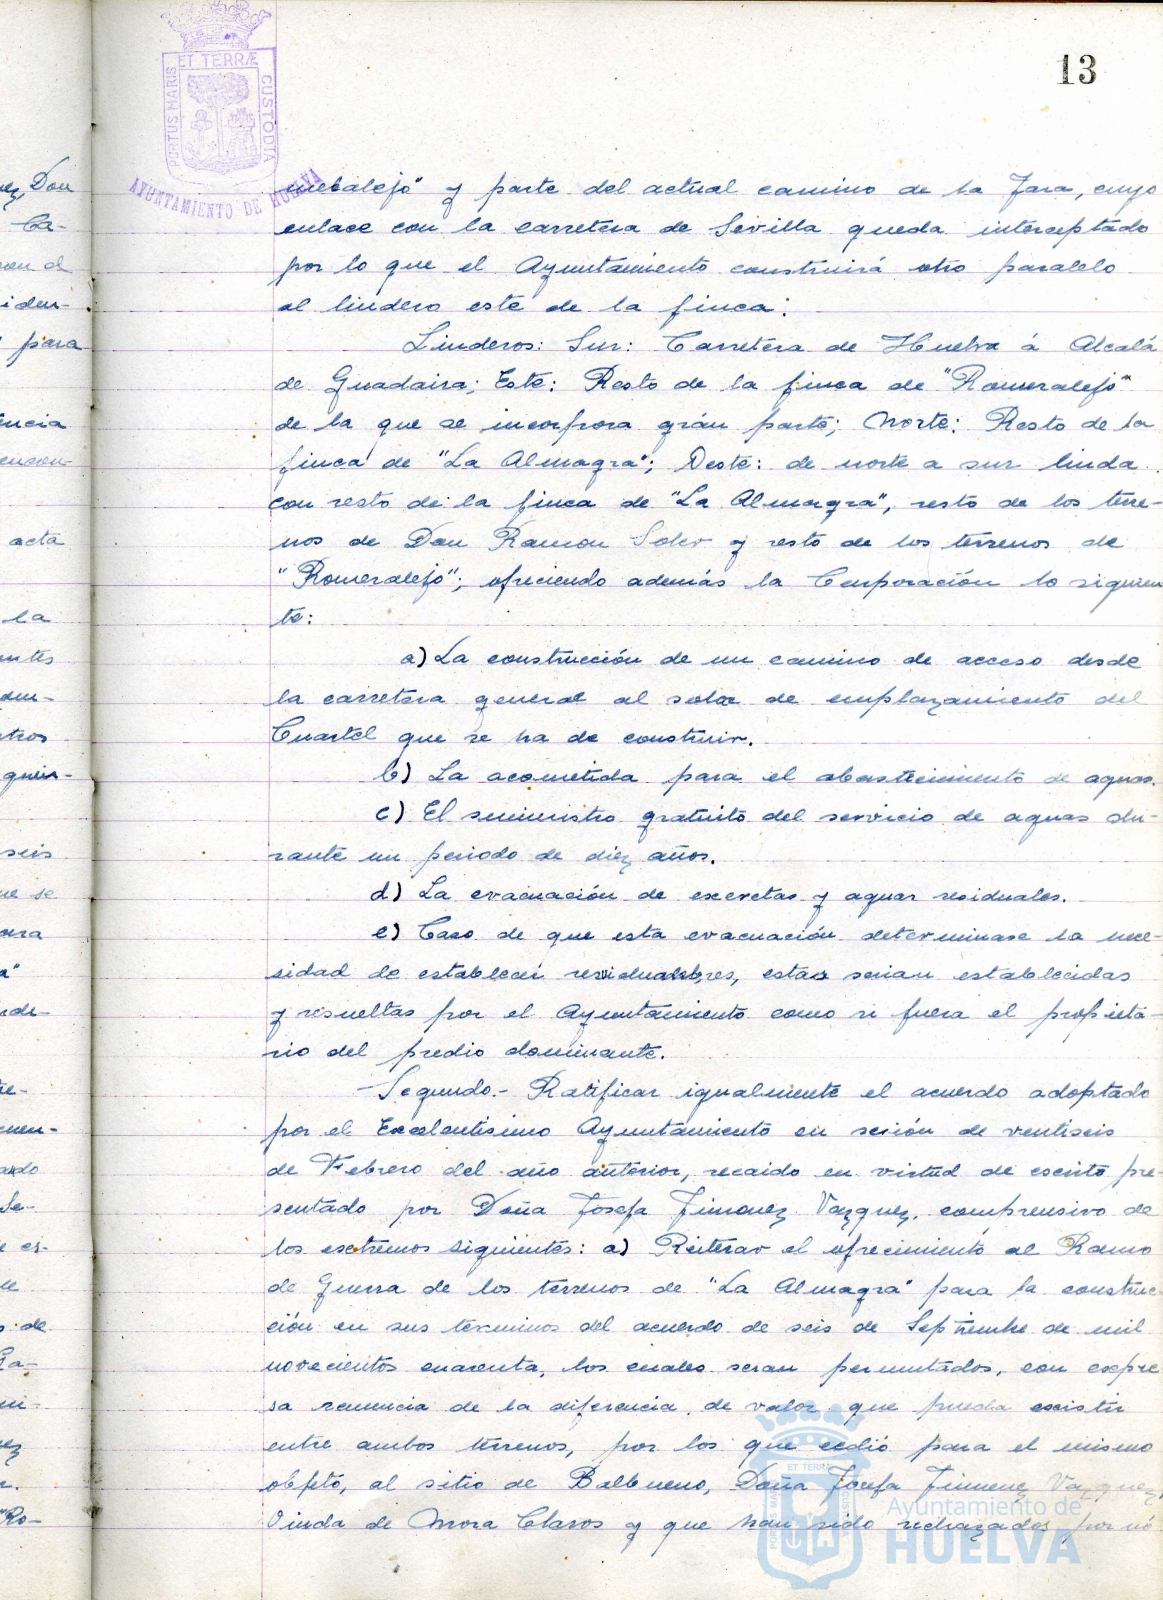 13
PORTUS MARIS ET TERRÆ CUSTODIA
AYUNTAMIENTO DE HUELVA
meralejo" y parte del actual camino de la Jara, cuyo
enlace con la carretera de Sevilla queda interceptado
por lo que el Ayuntamiento construirá otro paralelo
al lindero este de la finca:
Linderos: Sur: Carretera de Huelva á Alcalá
de Guadaira; Este: Resto de la finca de "Romeralejo"
de la que se incorpora grán parte; Norte: Resto de la
finca de "La Almagra"; Oeste: de norte a sur linda
con resto de la finca de "La Almagra", resto de los terre-
nos de Don Ramon Soler y resto de los terrenos de
"Romeralejo"; ofreciendo además la Corporación lo siguien
te:
a) La construcción de un camino de acceso desde
la carretera general al solar de emplazamiento del
Cuartel que se ha de construir.
b) La acometida para el abastecimiento de aguas.
c) El suministro gratuito del servicio de aguas du-
rante un periodo de diez años.
d) La evacuación de excretas y aguas residuales.
e) Caso de que esta evacuación determinase la nece-
sidad de establecer servidumbres, estas serian establecidas
y resueltas por el Ayuntamiento como si fuera el propieta-
rio del predio dominante.
Segundo.- Ratificar igualmente el acuerdo adoptado
por el Excelentisimo Ayuntamiento en sesión de ventiseis
de Febrero del año anterior, recaido en virtud de escrito pre
sentado por Doña Josefa Jimenez Vazquez, comprensivo de
los extremos siguientes: a) Reiterar el ofrecimiento al Ramo
de Guerra de los terrenos de "La Almagra" para la construc-
ción en sus terminos del acuerdo de seis de Septiembre de mil
novecientos cuarenta, los cuales seran permutados, con expre
sa renuncia de la diferencia de valor que pueda existir
entre ambos terrenos, por los que cedió para el mismo
objeto, al sitio de Balbueno, Doña Josefa Jimenez Vazquez,
Viuda de Mora Claros y que han sido rechazados por nó
Ayuntamiento de
HUELVA